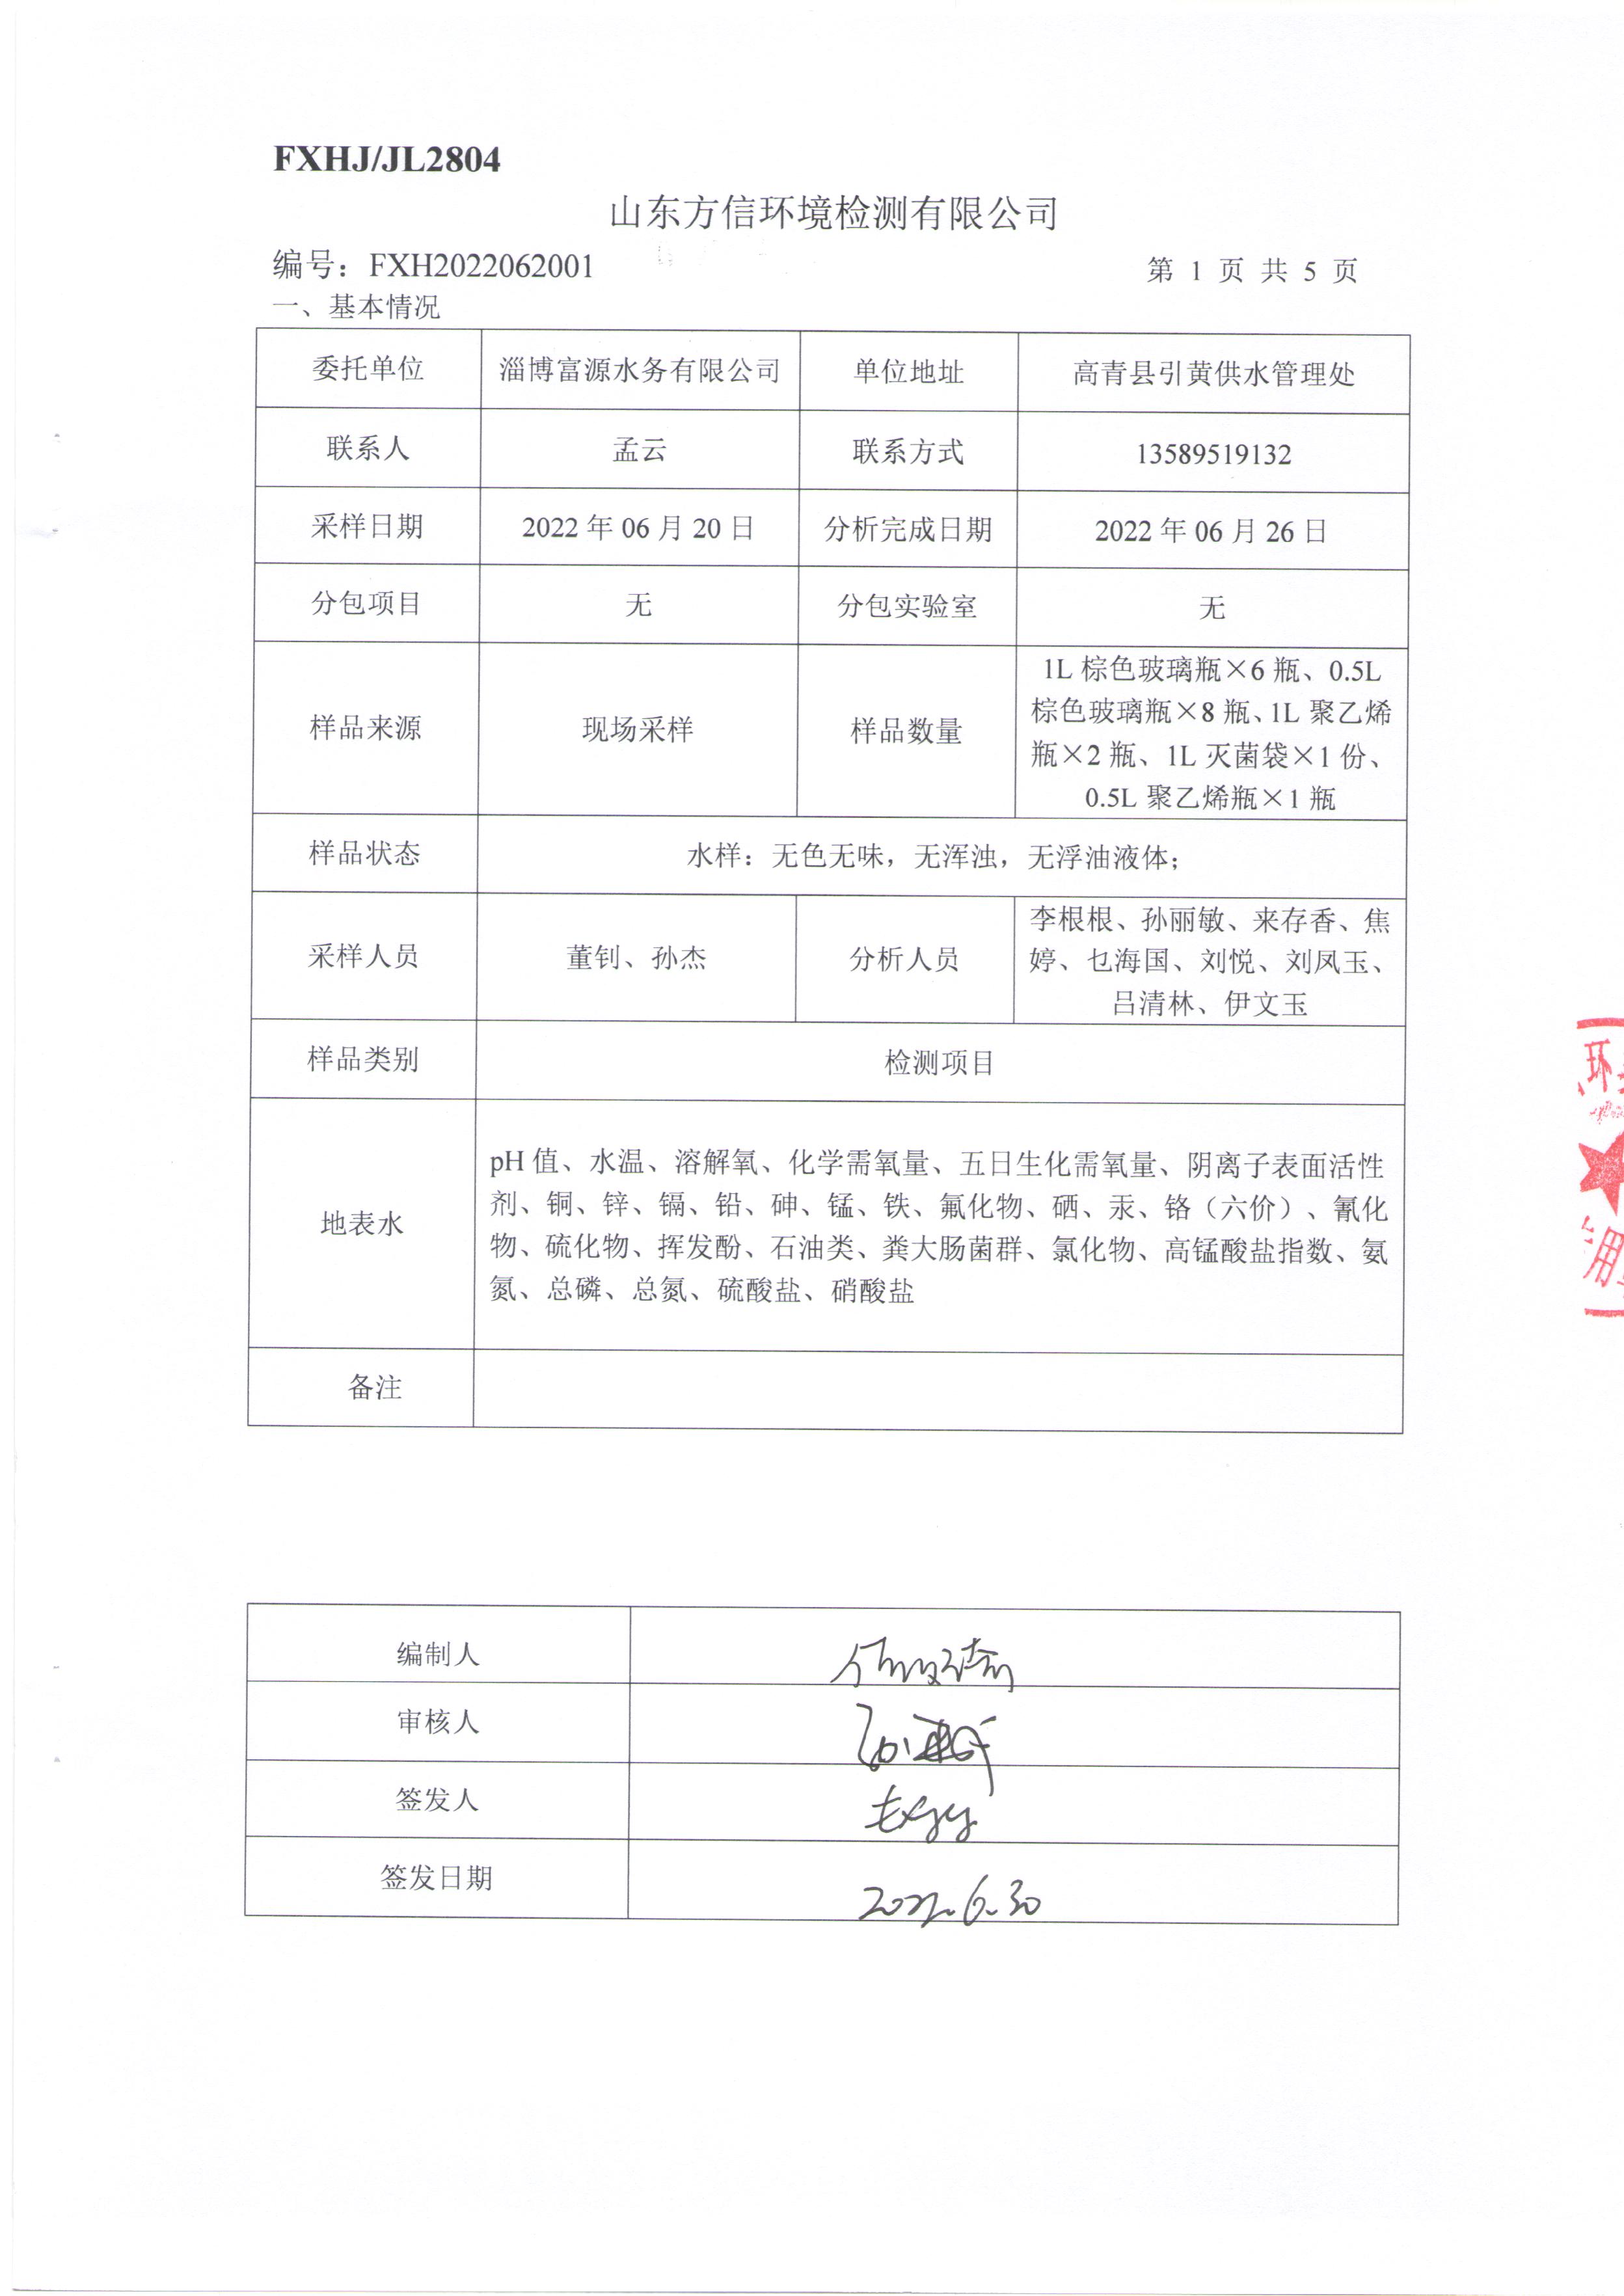 FXHJ/JL2804
山东方信环境检测有限公司
编号：FXH2022062001
第 1 页 共 5 页
一、基本情况
委托单位 淄博富源水务有限公司 单位地址 高青县引黄供水管理处
联系人 孟云 联系方式 13589519132
采样日期 2022 年 06 月 20 日 分析完成日期 2022 年 06 月 26 日
分包项目 无 分包实验室 无
样品来源 现场采样 样品数量
1L 棕色玻璃瓶×6 瓶、0.5L
棕色玻璃瓶×8 瓶、1L 聚乙烯
瓶×2 瓶、1L 灭菌袋×1 份、
0.5L 聚乙烯瓶×1 瓶
样品状态 水样：无色无味，无浑浊，无浮油液体；
采样人员 董钊、孙杰 分析人员
李根根、孙丽敏、来存香、焦
婷、乜海国、刘悦、刘凤玉、
吕清林、伊文玉
样品类别 检测项目
地表水
pH 值、水温、溶解氧、化学需氧量、五日生化需氧量、阴离子表面活性
剂、铜、锌、镉、铅、砷、锰、铁、氟化物、硒、汞、铬（六价）、氰化
物、硫化物、挥发酚、石油类、粪大肠菌群、氯化物、高锰酸盐指数、氨
氮、总磷、总氮、硫酸盐、硝酸盐
备注
编制人
审核人
签发人
签发日期 2022.6.30
环
用